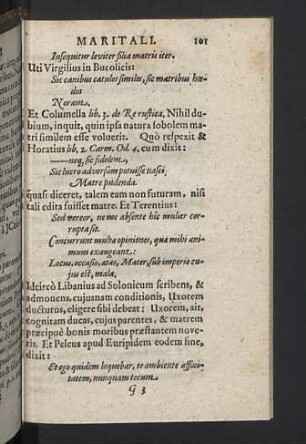 MARITALI. 101
Insequitur leviter filia matris iter.
Uti Virgilius in Bucolicis:
Sic canibus catulos similes, sic matribus hœ-
dos
Noram.
Et Columella lib. 3. de Re rustica. Nihil du-
bium, inquit, quin ipsa natura sobolem ma-
tri similem esse voluerit. Quò respexit &
Horatius lib. 2. Carm. Od. 4. cum dixit:
——neq, sic fidelem,
Sic lucro adversam potuisse nasci,
Matre pudenda.
quasi diceret, talem eam non futuram, nisi
tali edita fuisset matre. Et Terentius:
Sed vereor, ne me absente hic mulier cor-
rupta sit.
Concurrunt multæ opiniones, quæ mihi ani-
mum exaugeant:
Locus, occasio, ætas, Mater, sub imperio cu-
jus est, mala,
Idcircò Libanius ad Solonicum scribens, &
admonens, cujusnam conditionis, Uxorem
ducturus, eligere sibi debeat: Uxorem, ait,
cognitam ducas, cujus parentes, & matrem
præcipuè bonis moribus præstantem nove-
ris. Et Peleus apud Euripidem eodem sine,
dixit:
Et ego quidem loquebar, te ambiente affini-
tatem, nunquam tecum
G 3